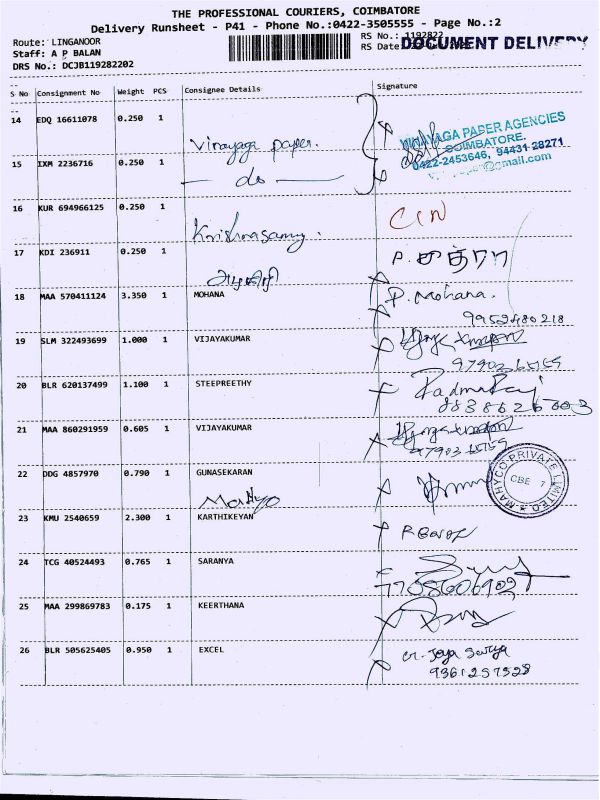 THE PROFESSIONAL COURIERS, COIMBATORE
Delivery Runsheet - P41 - Phone No.:0422-3505555 - Page No.:2
Route: LINGANOOR
Staff: A P BALAN
DRS No.: DCJB119282202
RS No.: 1192822
RS Date:
DOCUMENT DELIVERY
S No Consignment No Weight PCS Consignee Details Signature
14 EDQ 16611078 0.250 1 Vinayaga paper.
VINAYAGA PAPER AGENCIES
COIMBATORE.
0422-2453646, 94431 28271
@gmail.com
15 IXM 2236716 0.250 1 do
16 KUR 694966125 0.250 1 Krishnasamy.
17 KDI 236911 0.250 1
18 MAA 570411124 3.350 1 MOHANA P. Mohana.
9959480218
19 SLM 322493699 1.000 1 VIJAYAKUMAR
20 BLR 620137499 1.100 1 STEEPREETHY
21 MAA 860291959 0.605 1 VIJAYAKUMAR
22 DDG 4857970 0.790 1 GUNASEKARAN
MAHYCO PRIVATE LIMITED
CBE 7
23 KMU 2540659 2.300 1 KARTHIKEYAN
24 TCG 40524493 0.765 1 SARANYA
7708606902
25 MAA 299869783 0.175 1 KEERTHANA
26 BLR 505625405 0.950 1 EXCEL
9361257528